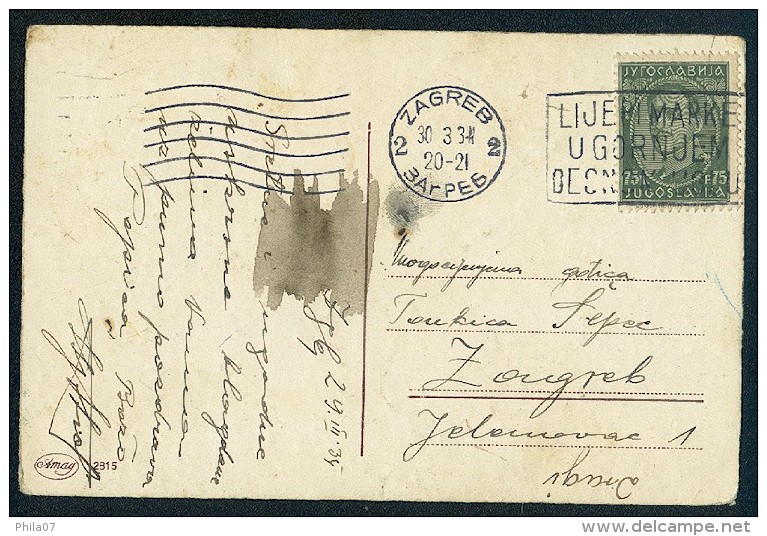 ЈУГОСЛАВИЈА
75 P. 75
JUGOSLAVIJA
ZAGREB
2 30 3 34 2
20-21
ЗАГРЕБ
LIJEPI MARKE
U GORNJEM
DESNOM UGLU
Mnogocijenjena gdjica
Tonkica Sepec
Zagreb
Jelenovac 1
Zgb 29. III 34
Sretne i ugodne
uskrsne blagdane
želimo Vama
uz puno pozdrava
Pepica,
Amag 2315
Phila07
delcampe.net